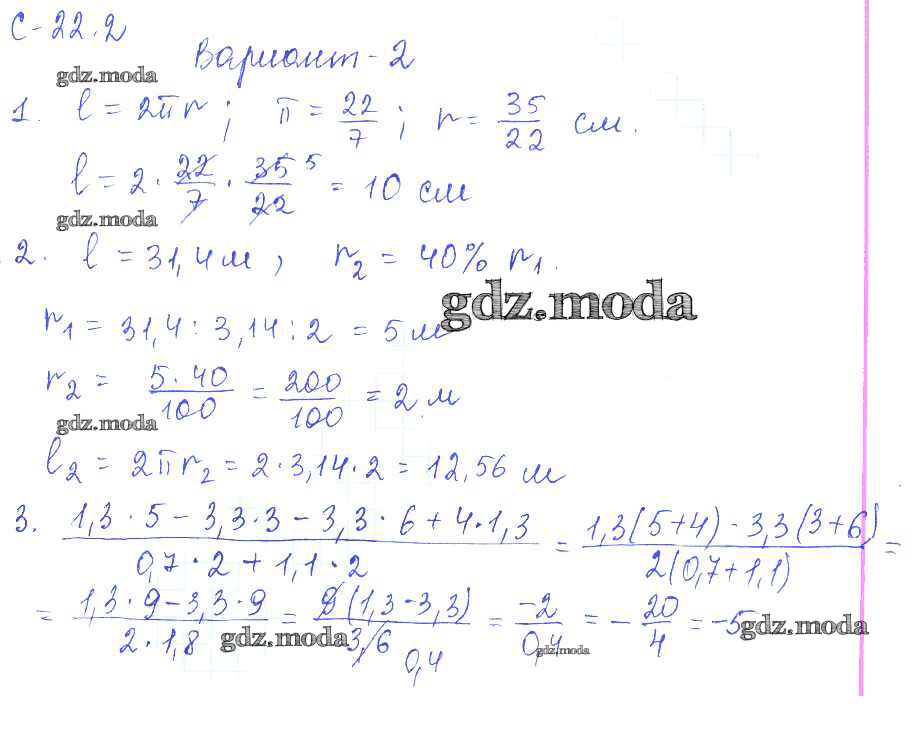 С-22.2
Вариант-2
gdz.moda
1. l = 2πr; π = 22/7; r = 35/22 см.
l = 2 · 22/7 · 35/22 5 = 10 см
gdz.moda
2. l = 31,4 м, r₂ = 40% r₁.
gdz.moda
r₁ = 31,4 : 3,14 : 2 = 5 м
r₂ = 5·40/100 = 200/100 = 2 м
gdz.moda
l₂ = 2πr₂ = 2·3,14·2 = 12,56 м
3. (1,3·5 - 3,3·3 - 3,3·6 + 4·1,3)/(0,7·2 + 1,1·2) = (1,3(5+4) - 3,3(3+6))/(2(0,7+1,1)) =
= (1,3·9 - 3,3·9)/(2·1,8) = 9(1,3-3,3)/3,6 0,4 = -2/0,4 = -20/4 = -5
gdz.moda
gdz.moda
gdz.moda